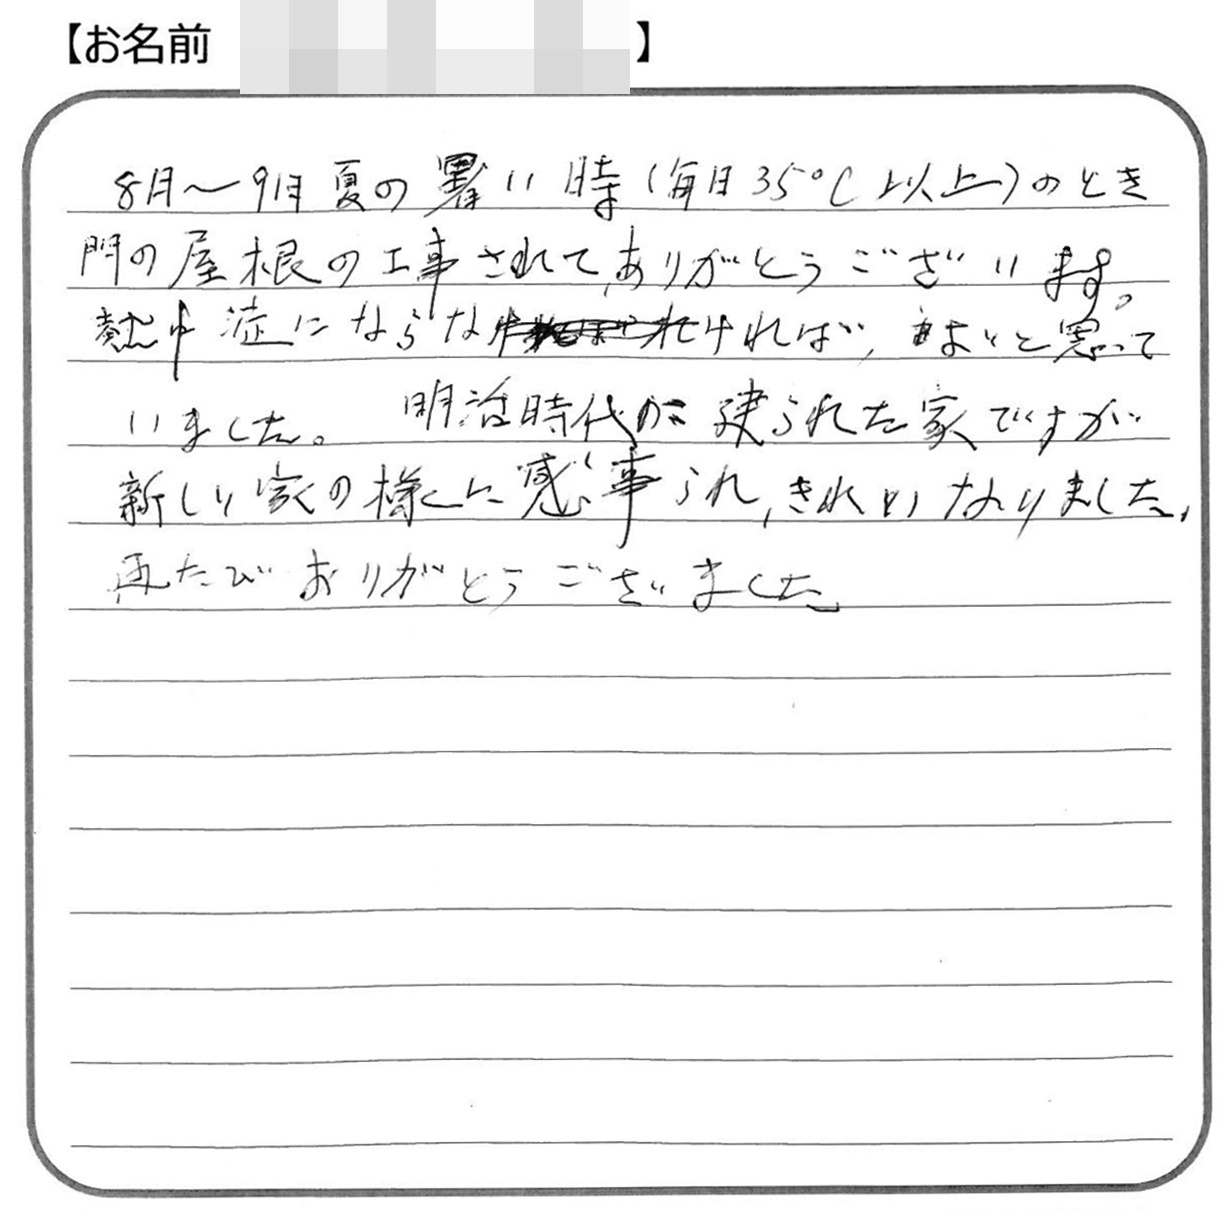 【お名前 】
8月〜9月夏の暑い時(毎日35℃以上)のとき
門の屋根の工事されて、ありがとうございます。
熱中症にならなければ、よいと思って
いました。 明治時代に建られた家ですが
新しい家の様に感事られ、きれいなりました。
再たびありがとうございました